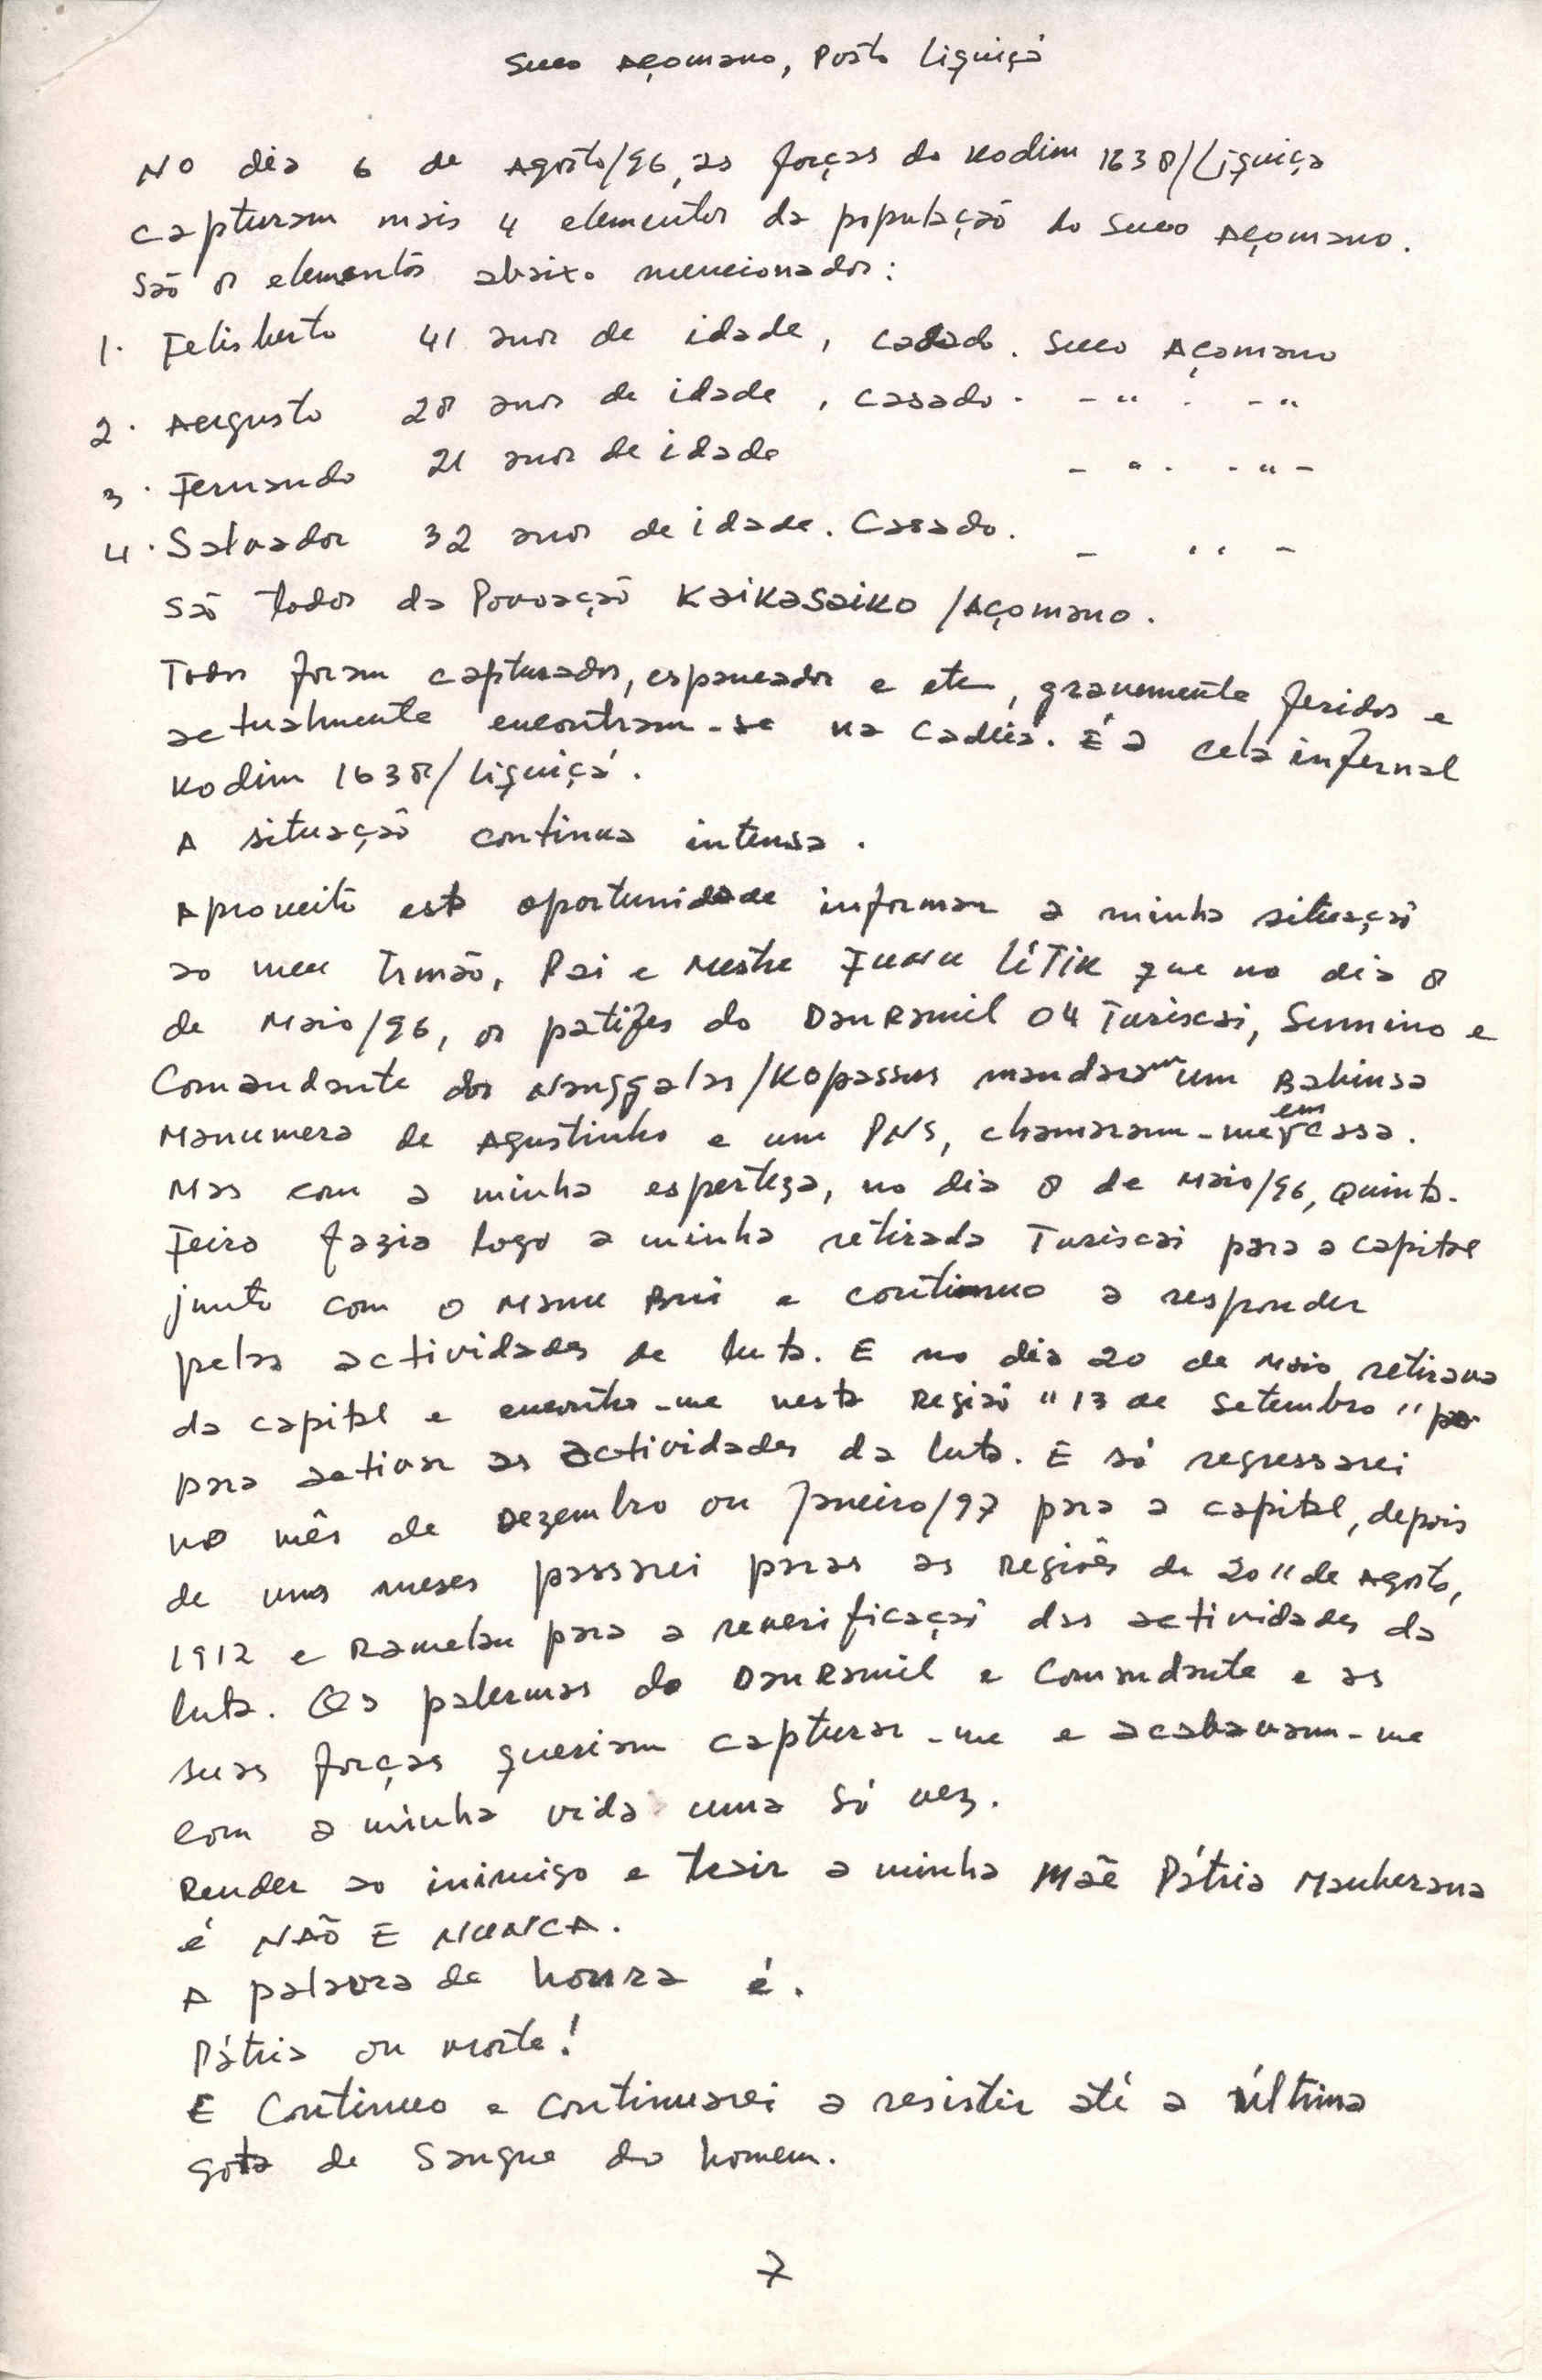 Suco Açomano, Posto Liquiçá
No dia 6 de Agosto/96, as forças do Kodim 1638/Liquiça
capturam mais 4 elementos da população do Suco Açomano.
São os elementos abaixo mencionados:
1. Felisberto 41 anos de idade, casado. Suco Açomano
2. Augusto 28 anos de idade, casado. - " . - "
3. Fernando 21 anos de idade - " . - " -
4. Salvador 32 anos de idade. Casado. - " -
São todos da Povoação Kaikasaiko /Açomano.
Todos foram capturados, espancados e etc, gravemente feridos e
actualmente encontram-se na Cadeia. É a cela infernal
Kodim 1638/Liquiçá.
A situação continua intensa.
Aproveito esta oportunidade informar a minha situação
ao meu Irmão, Pai e Mestre Funu Lítik que no dia 8
de Maio/96, os patifes do DanRamil 04 Turiscai, Sumino e
Comandante dos Nanggalas/Kopassus mandaram um Babinsa
Manumera de Agustinho e um PNS, chamaram-me em casa.
Mas com a minha esperteza, no dia 8 de Maio/96, Quinta-
Feira fazia logo a minha retirada Turiscai para a capital
junto com o Manu Bui e continuo a responder
pelas actividades de luta. E no dia 20 de Maio retirava
da capital e encontro-me nesta Região "13 de Setembro"
para activar as actividades da luta. E só regressarei
no mês de Dezembro ou Janeiro/97 para a capital, depois
de uns meses passarei paras as Regiões de 20" de Agosto,
1912 e Ramelau para a reverificação das actividades da
luta. Os palermas do DanRamil e Comandante e as
suas forças queriam capturar-me e acabavam-me
com a minha vida uma só vez.
Render ao inimigo e trair a minha Mãe Pátria Mauberana
é NÃO E NUNCA.
A palavra de honra é.
Pátria ou morte!
E Continuo e continuarei a resistir até a última
gota de Sangue do homem.
7